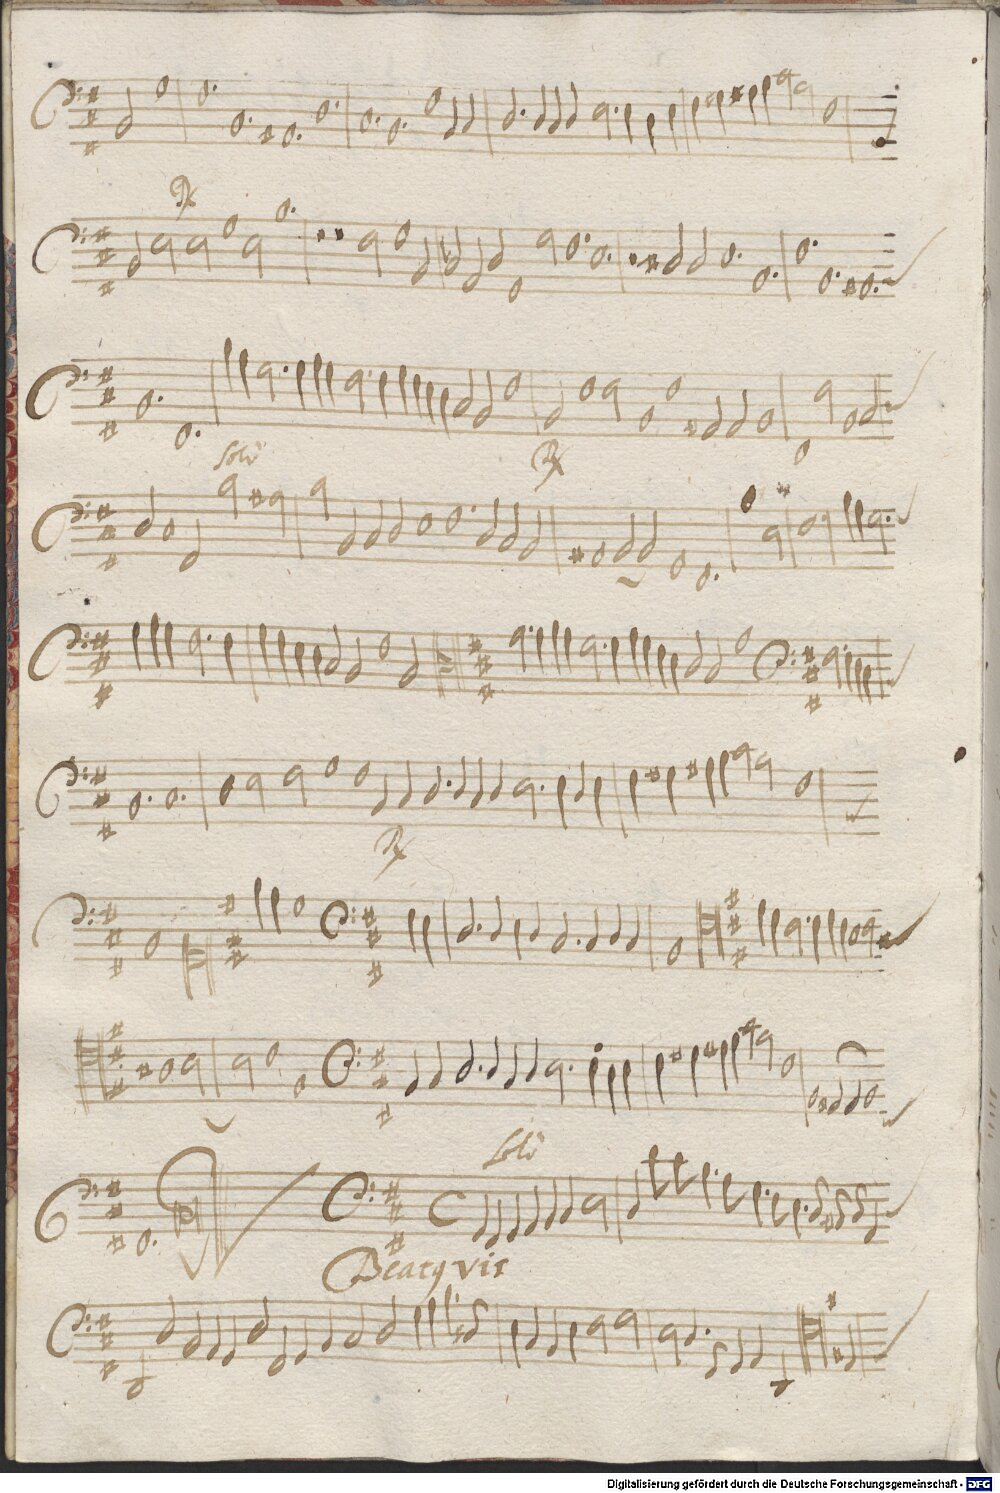 Solo
Solo
Beatus vir
Digitalisierung gefördert durch die Deutsche Forschungsgemeinschaft - DFG